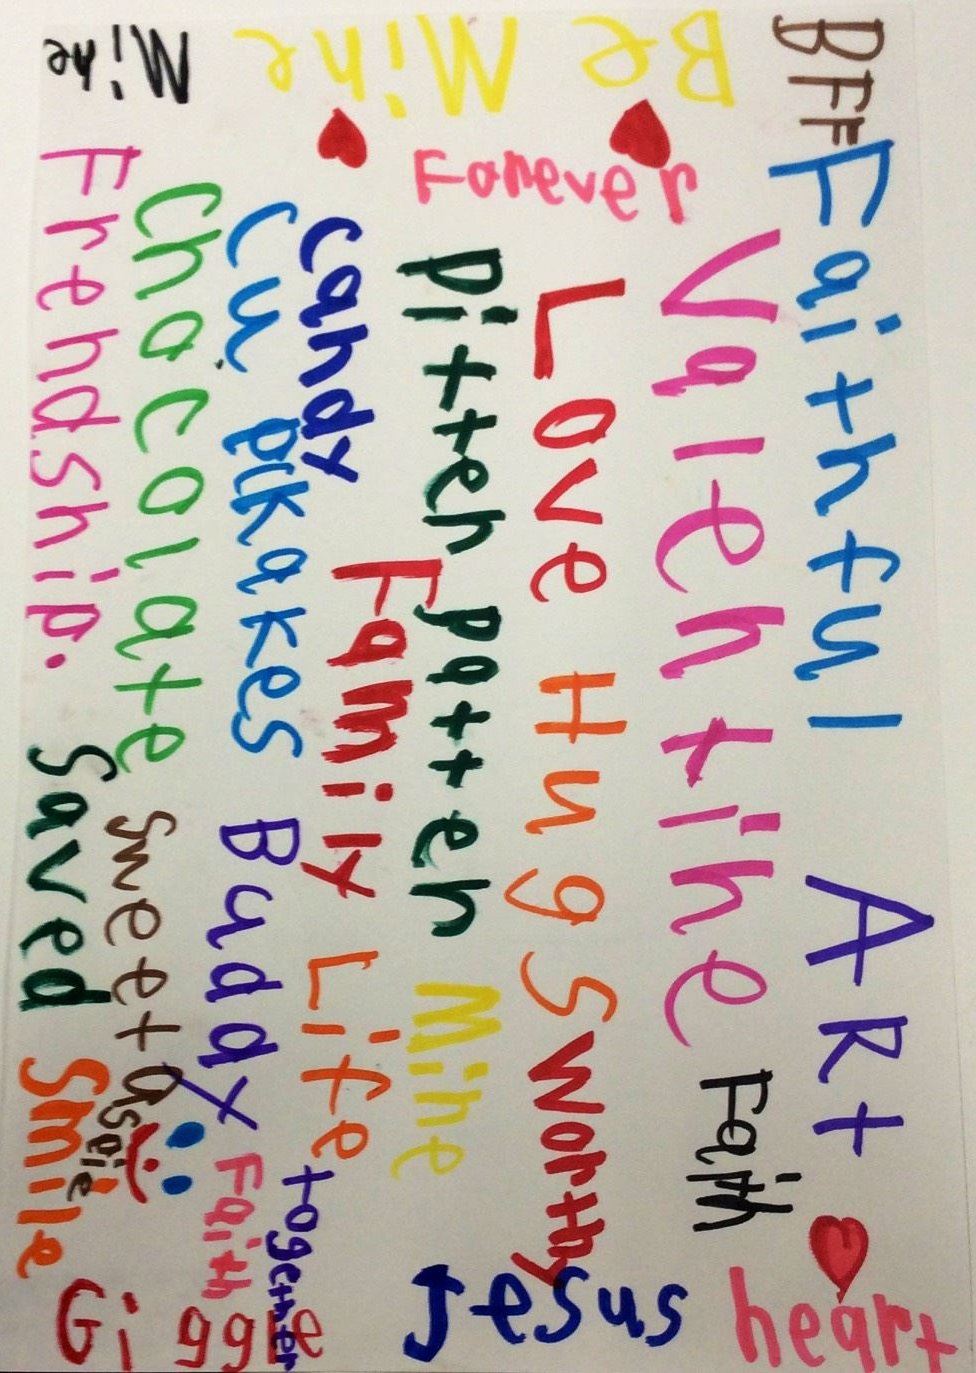 BFF
Faithful ARt
heart
Valentine Faith
Love Hugs worthy
Forever
Be Mine
pitten patten Mine
Jesus
Candy Family Life together
Cupkakes Buddy Faith
Chocolate Sweet
Mine
Frendship. Saved Smile
Giggle